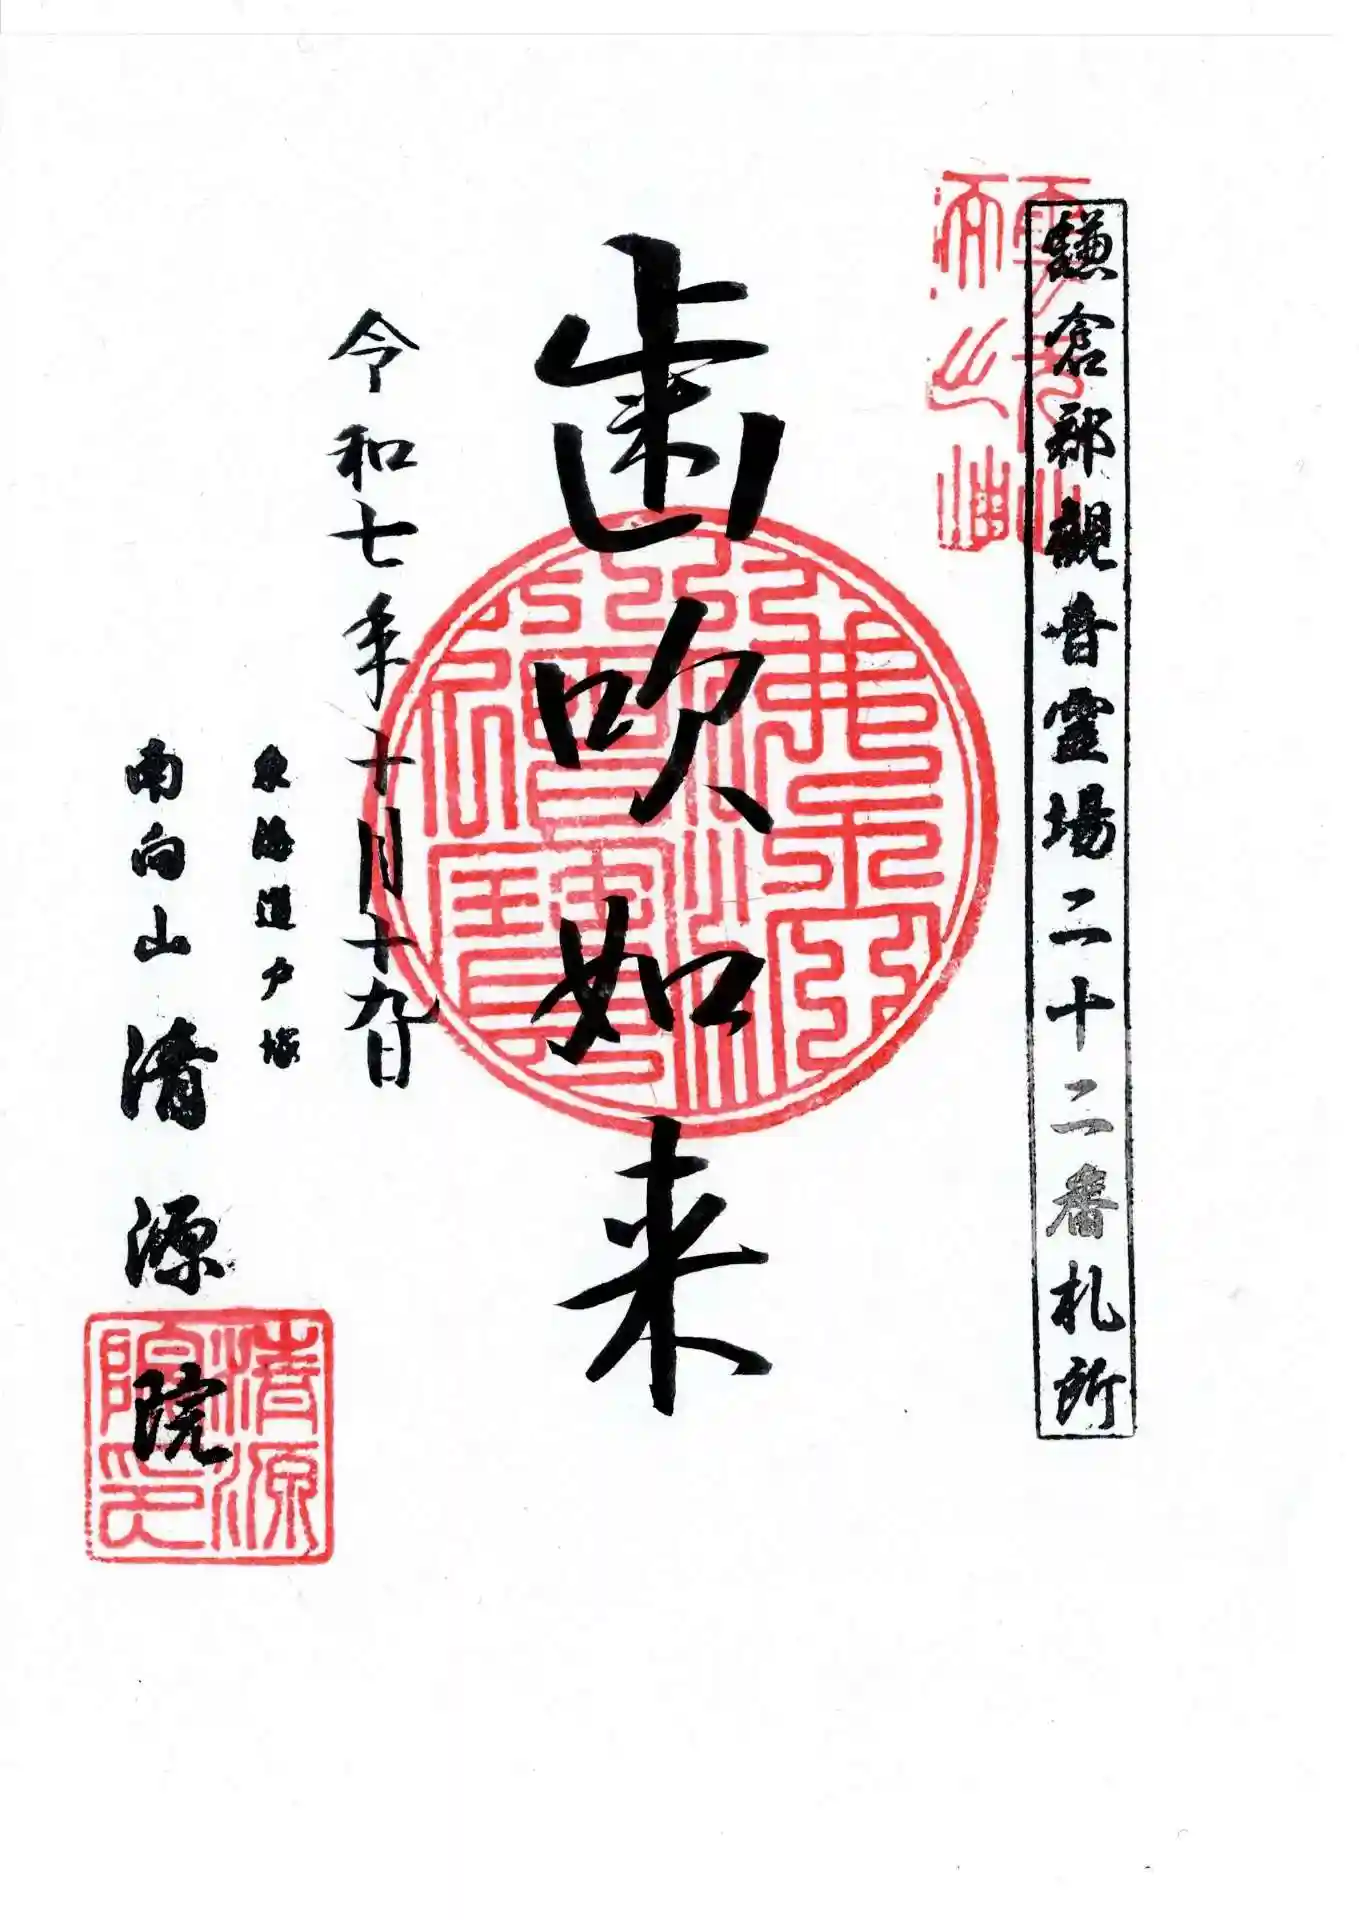 鎌倉郡観音霊場二十二番札所
歯吹如来
令和七年十月十九日
東海道戸塚
南向山 清源院
清源院印